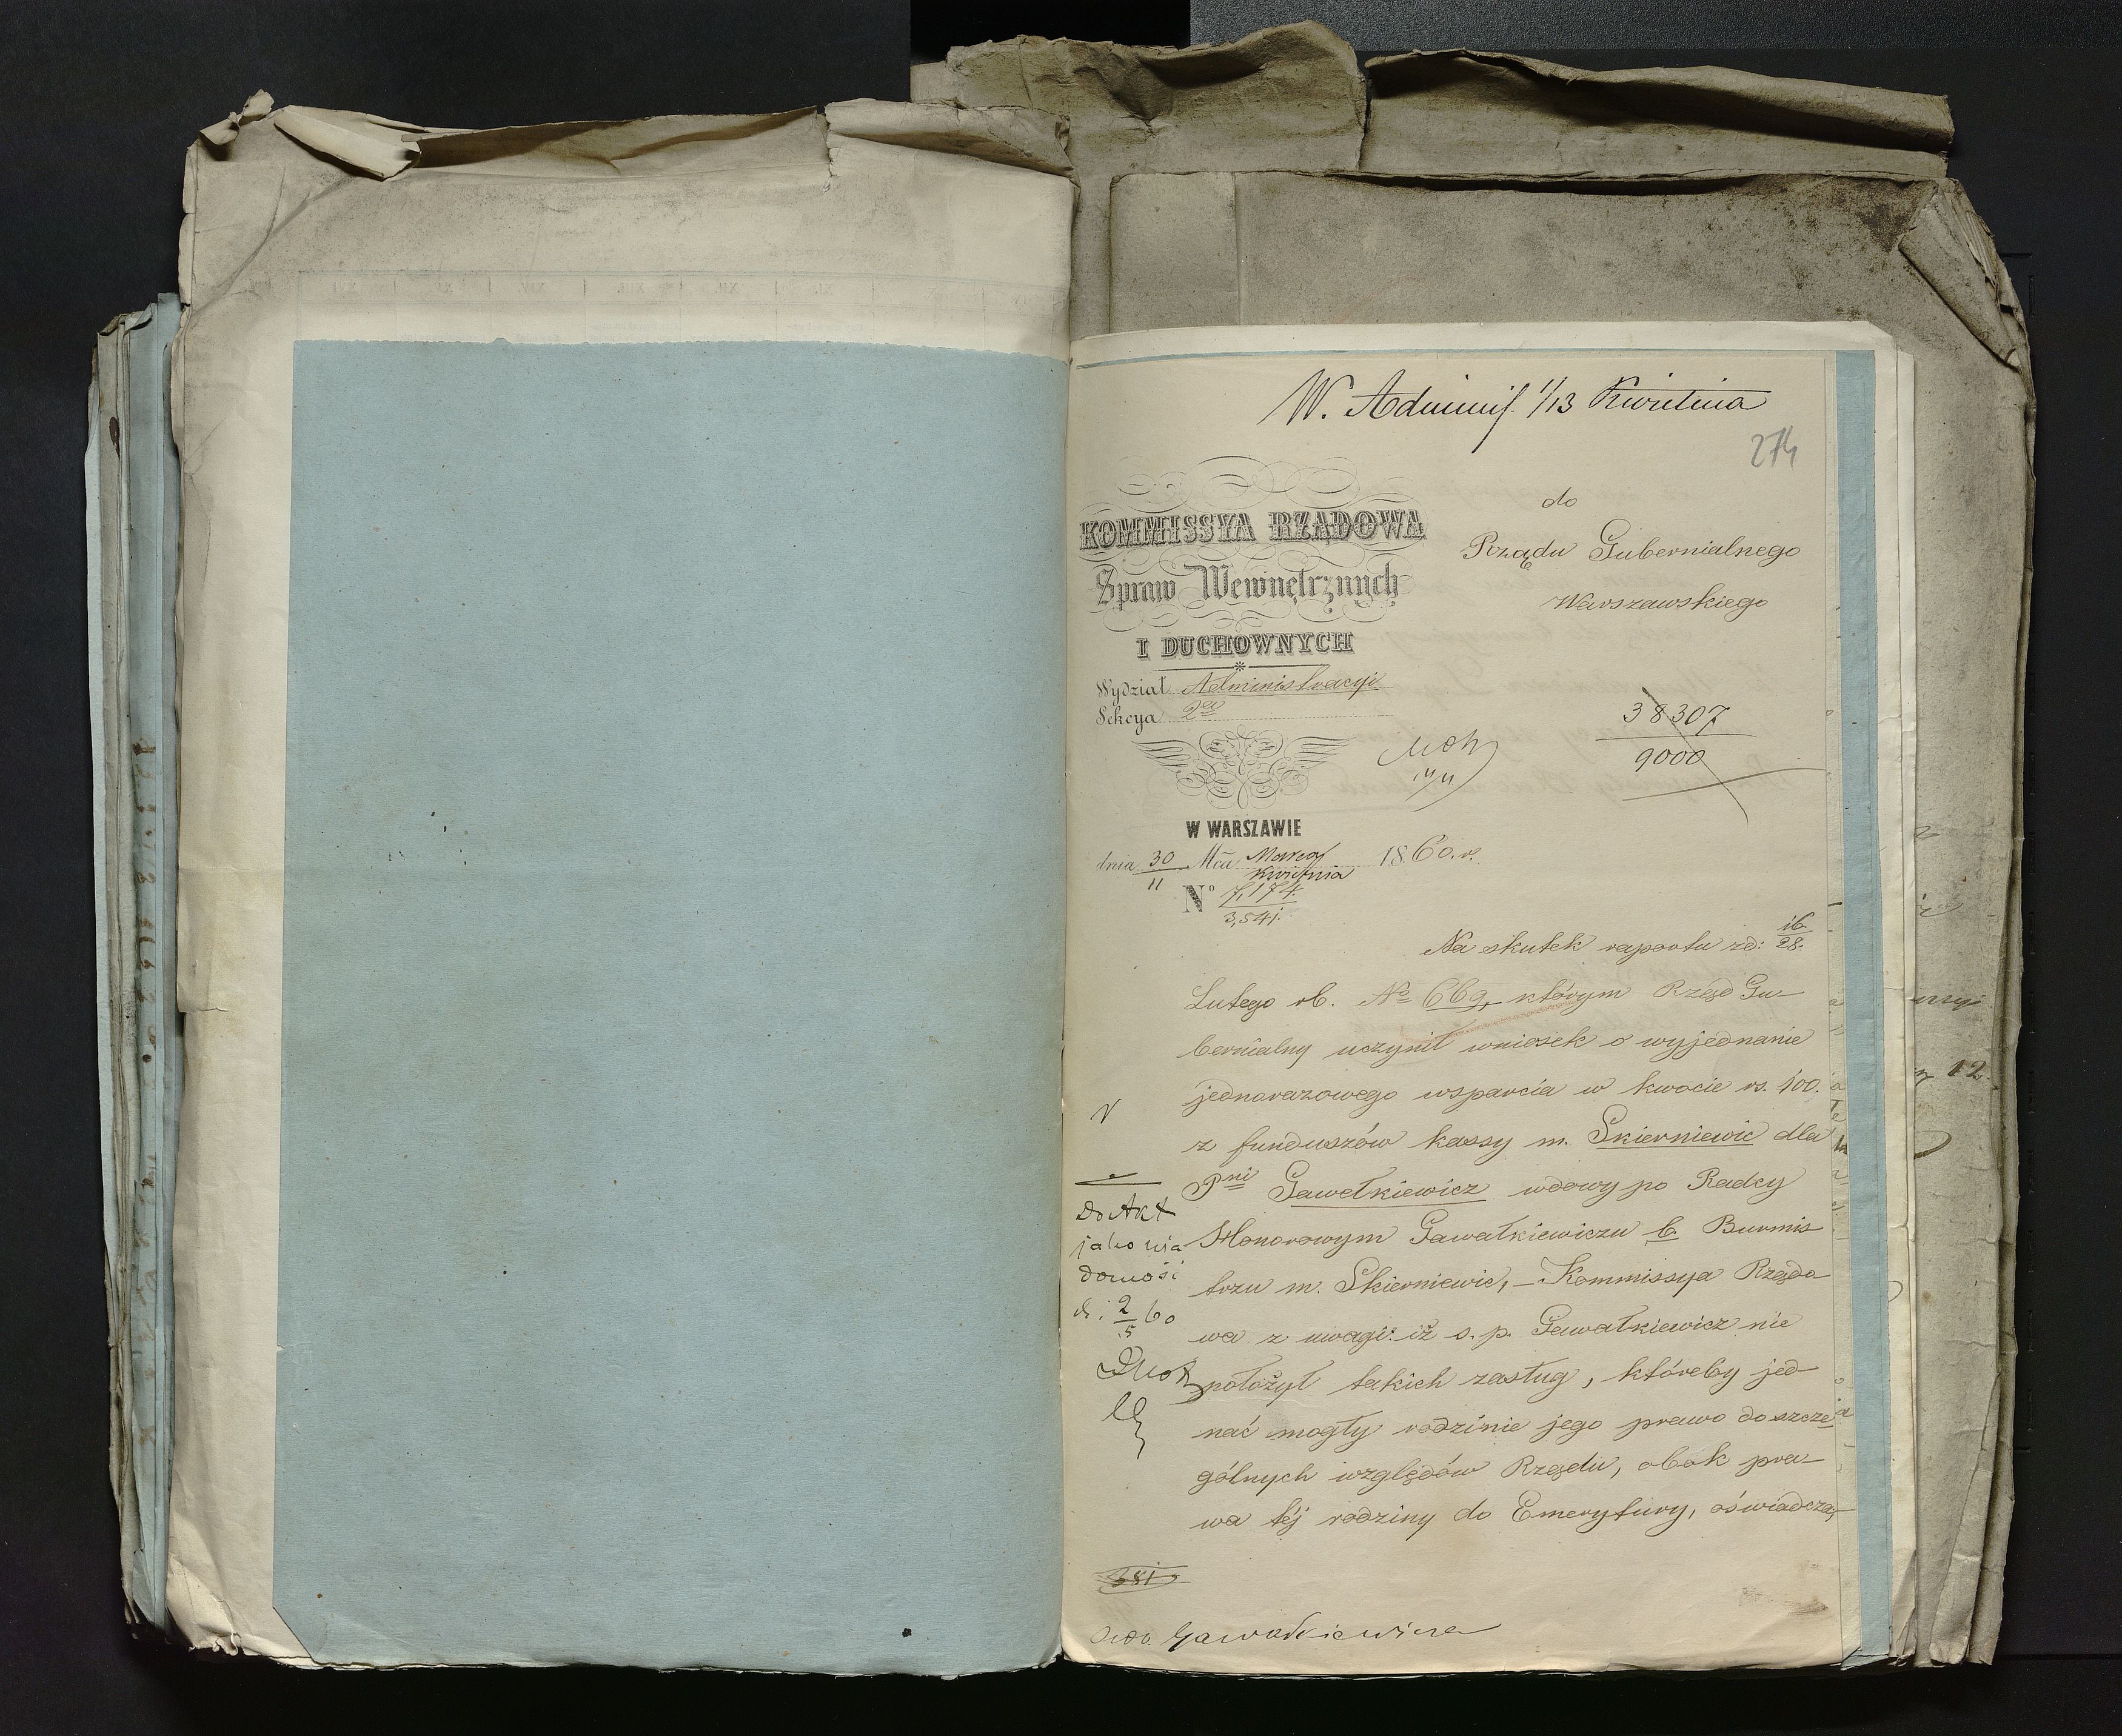 W. Adminis. 1/13 Kwietnia
274
do
Rządu Gubernialnego
Warszawskiego
KOMMISSYA RZĄDOWA
Spraw Wewnętrznych
I DUCHOWNYCH
Wydział Administracyi
Sekcya 2ga
38307
9000
W WARSZAWIE
dnia 30/11 Mca Marca/Kwietnia 1860. r.
No 7,174.
3,541.
Na skutek raportu zd: 16/28.
Lutego rb. No 669, którym Rząd Gu-
bernialny uczynił wniosek o wyjednanie
jednorazowego wsparcia w kwocie rs. 100.
z funduszów kassy m. Skierniewic dla
Pni Gawełkiewicz wdowy po Radcy
Honorowym Gawałkiewiczu b. Burmis
trzu m. Skierniewic, – Kommissya Rządo
wa z uwagi: iż s. p. Gawałkiewicz nie
położył takich zasług, któreby jed
nać mogły rodzinie jego prawo do szcze
gólnych względów Rządu, obok pra-
wa téj rodziny do Emerytury, oświadcza,
Do Akt
jako wia
domość
d: 2/5 60
381
Gawałkiewicza
12